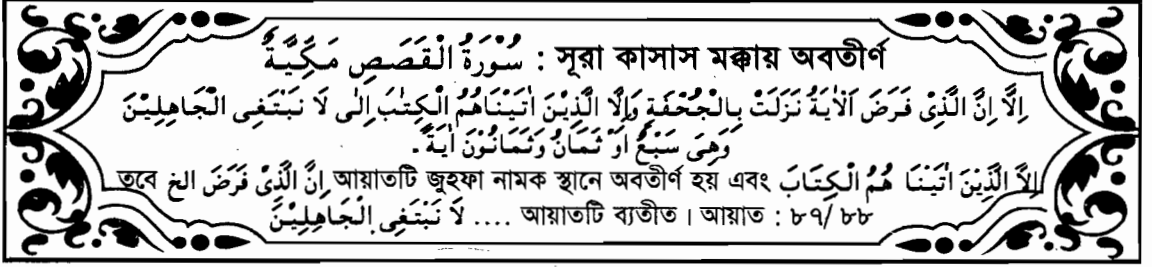 سُوْرَةُ الْقَصَصِ مَكِّيَّةٌ : সূরা কাসাস মক্কায় অবতীর্ণ
اِلَّا اِنَّ الَّذِىْ فَرَضَ اَلْاٰيَةُ نَزَلَتْ بِالْجُحْفَةِ وَاِلَّا الَّذِيْنَ اٰتَيْنَاهُمُ الْكِتٰبَ اِلٰى لَا نَبْتَغِى الْجَاهِلِيْنَ
وَهِىَ سَبْعٌ اَوْ ثَمَانٌ وَثَمَانُوْنَ اٰيَةً .
তবে اِنَّ الَّذِىْ فَرَضَ الخ আয়াতটি জুহফা নামক স্থানে অবতীর্ণ হয় এবং اِلَّا الَّذِيْنَ اٰتَيْنَا هُمُ الْكِتَابَ
لَا نَبْتَغِى الْجَاهِلِيْنَ .... আয়াতটি ব্যতীত। আয়াত : ৮৭/৮৮